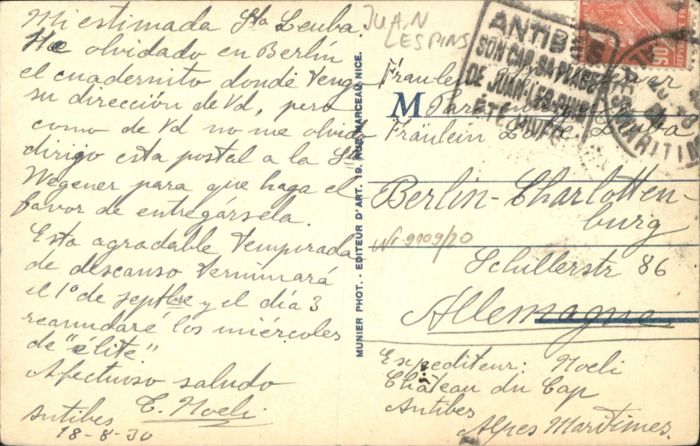 Mi estimada Sta Leuba.
He olvidado en Berlín
el cuadernito donde tenga
su dirección de Vd, pero
como de Vd no me olvido
dirigo esta postal a la Sta
Wegener para que haga el
favor de entregársela.
Esta agradable temporada
de descanso terminará
el 1º de septbre y el día 3
reanudaré los miércoles
de "élite"
Afectuoso saludo
C. Noeli.
Antibes
18-8-30
MUNIER PHOT. - EDITEUR D'ART. 19, RUE MARCEAU, NICE.
JUAN
LES PINS
ANTIBES
SON CAP. SA PLAGE
DE JUAN-LES-PINS
ETE HIVER
90
Fräulein
M
Fräulein Leuba
Berlin-Charlotten-
burg
Nr 9109/70
Schillerstr 86
Allemagne
Expediteur: Noeli
Château du Cap
Antibes
Alpes Maritimes.